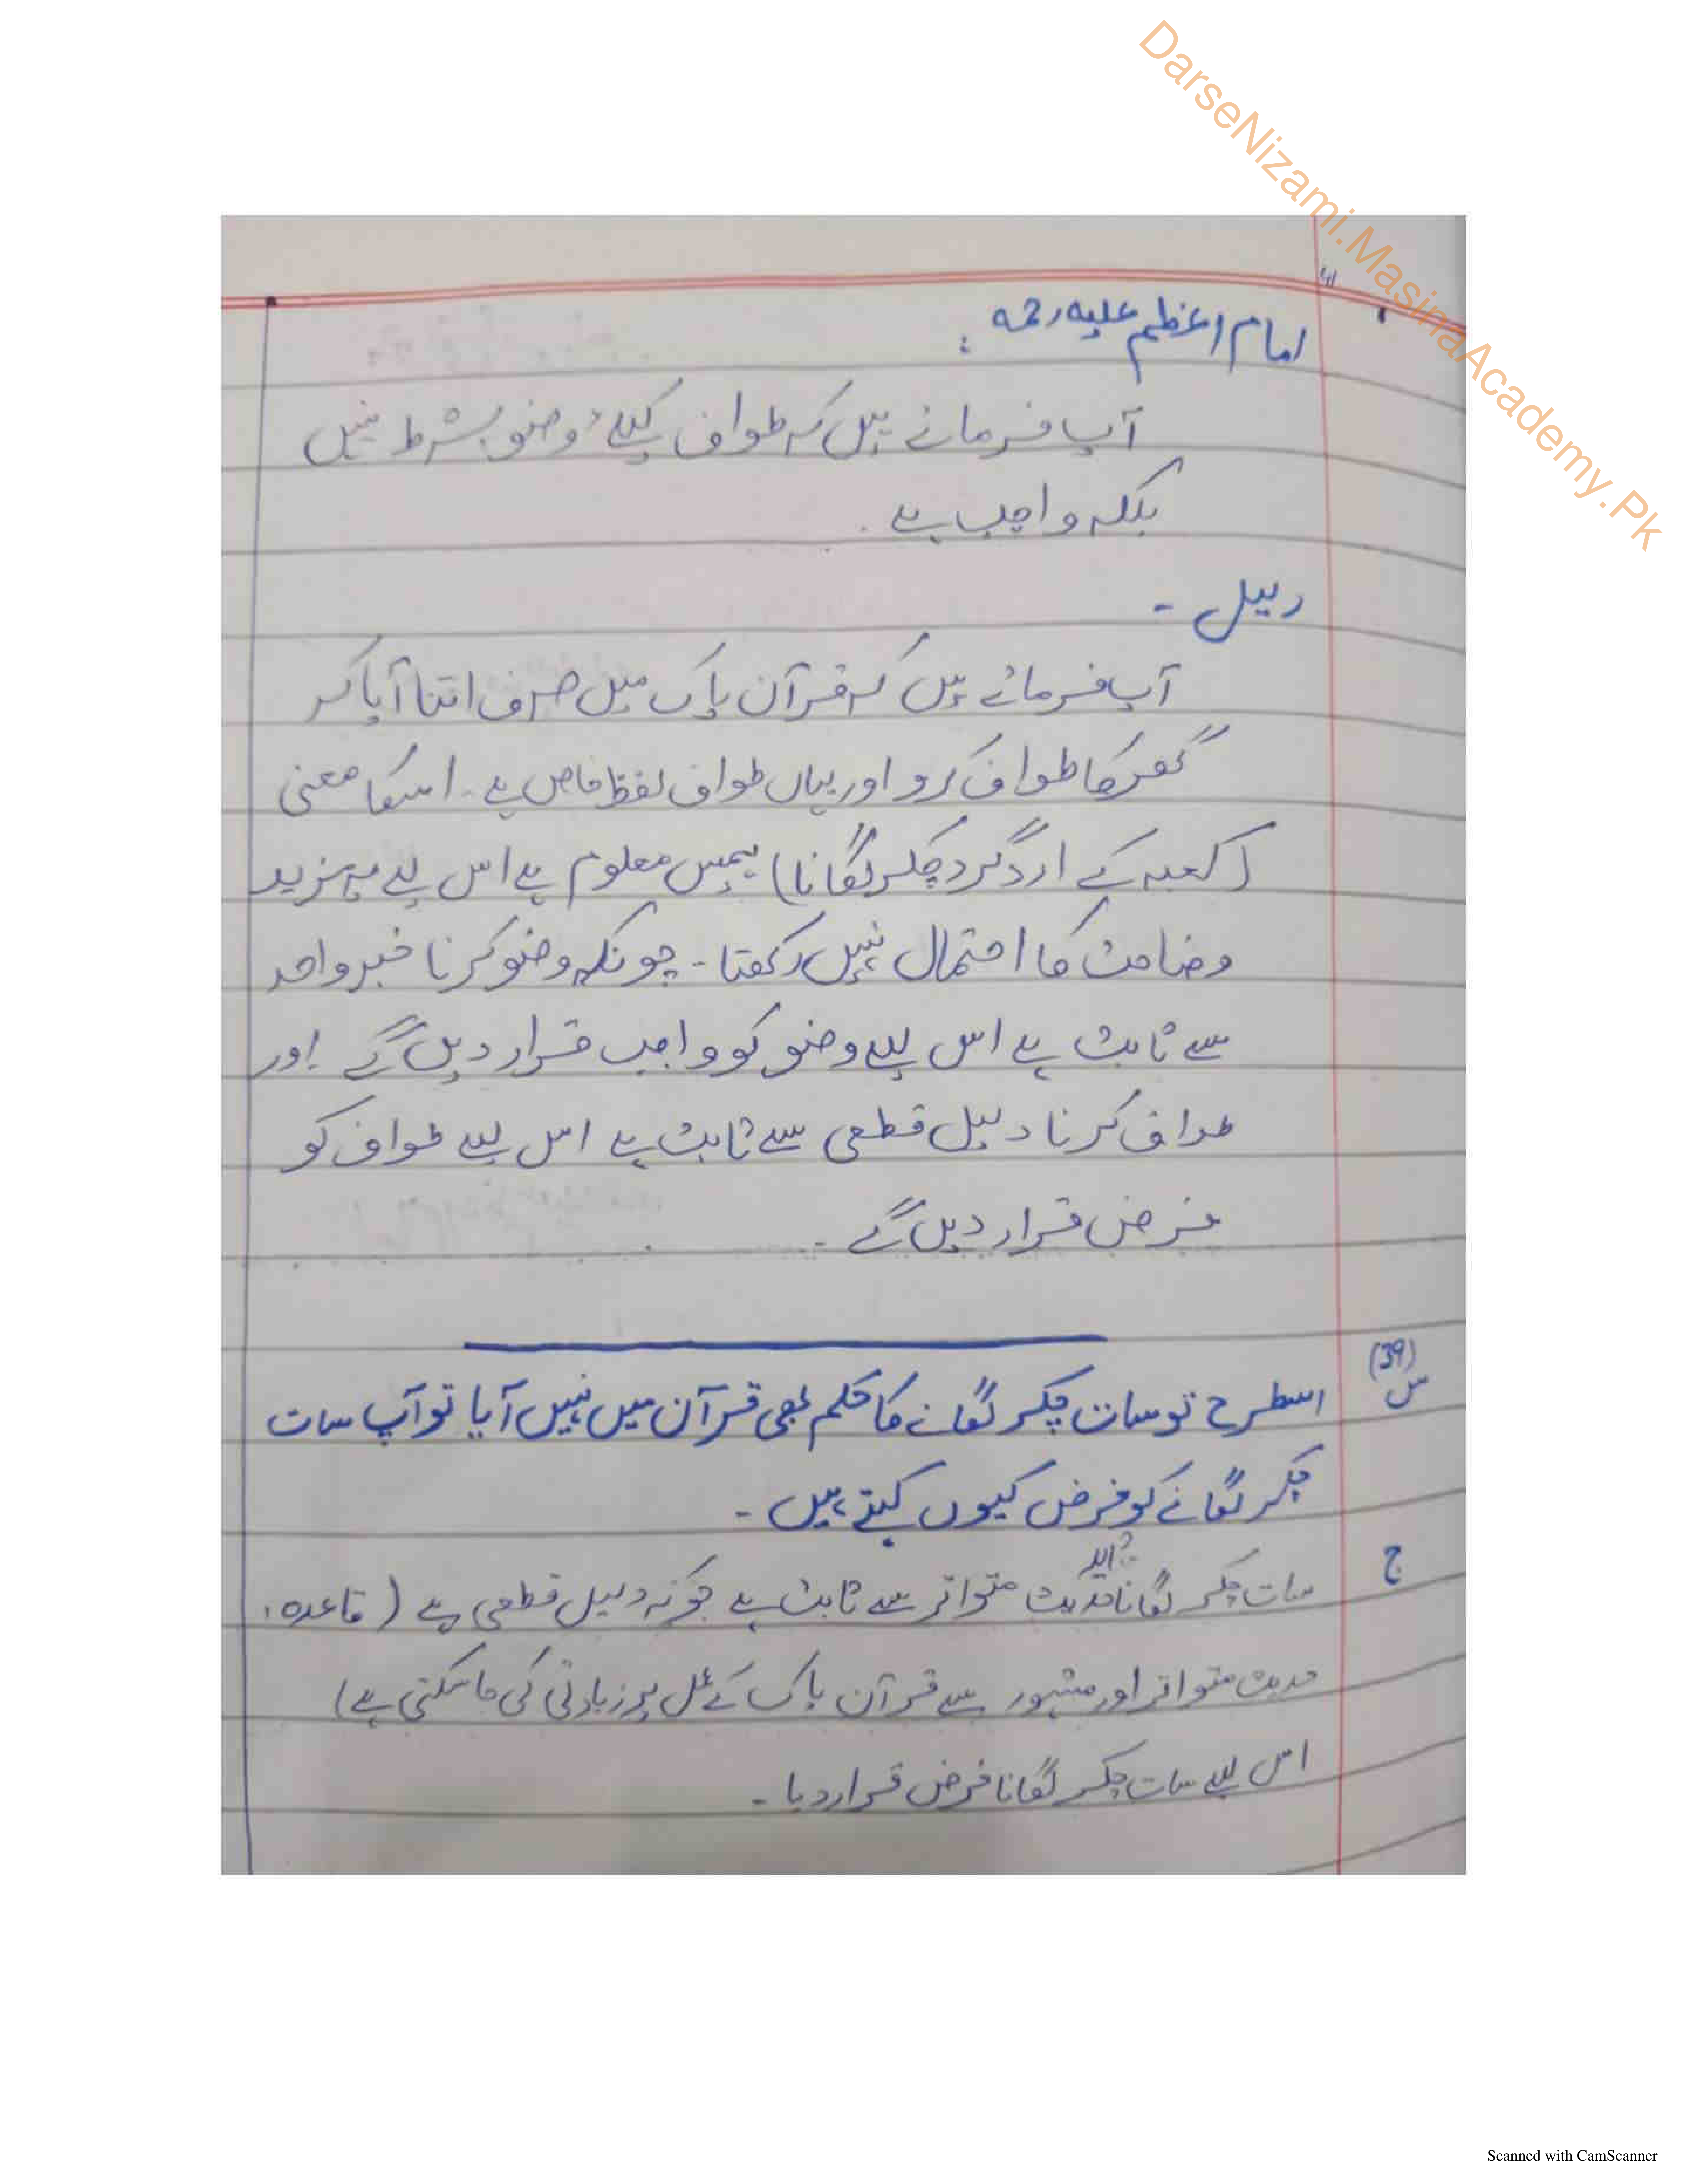 DarseNizami.MasinaAcademy.Pk
41
امام اعظم علیہ رحمہ :
آپ فرماتے ہیں کہ طواف کیلئے وضو شرط نہیں
بلکہ واجب ہے .
دلیل -
آپ فرماتے ہیں کہ قرآن پاک میں صرف اتنا آیا کہ
گھر کا طواف کرو اور یہاں طواف لفظ خاص ہے - اسکا معنی
( کعبہ کے اردگرد چکر لگانا ) ہمیں معلوم ہے اس لیے یہ مزید
وضاحت کا احتمال نہیں رکھتا - چونکہ وضو کرنا خبر واحد
سے ثابت ہے اس لیے وضو کو واجب قرار دیں گے اور
طواف کرنا دلیل قطعی سے ثابت ہے اس لیے طواف کو
فرض قرار دیں گے -
س (39) اسطرح تو سات چکر لگانے کا حکم بھی قرآن میں نہیں آیا تو آپ سات
چکر لگانے کو فرض کیوں کہتے ہیں -
ج سات چکر لگانا حدیث متواتر سے ثابت ہے جو کہ دلیل قطعی ہے ( قاعدہ :
حدیث متواتر اور مشہور سے قرآن پاک کے عمل پر زیادتی کی جا سکتی ہے )
اس لیے سات چکر لگانا فرض قرار دیا -
Scanned with CamScanner